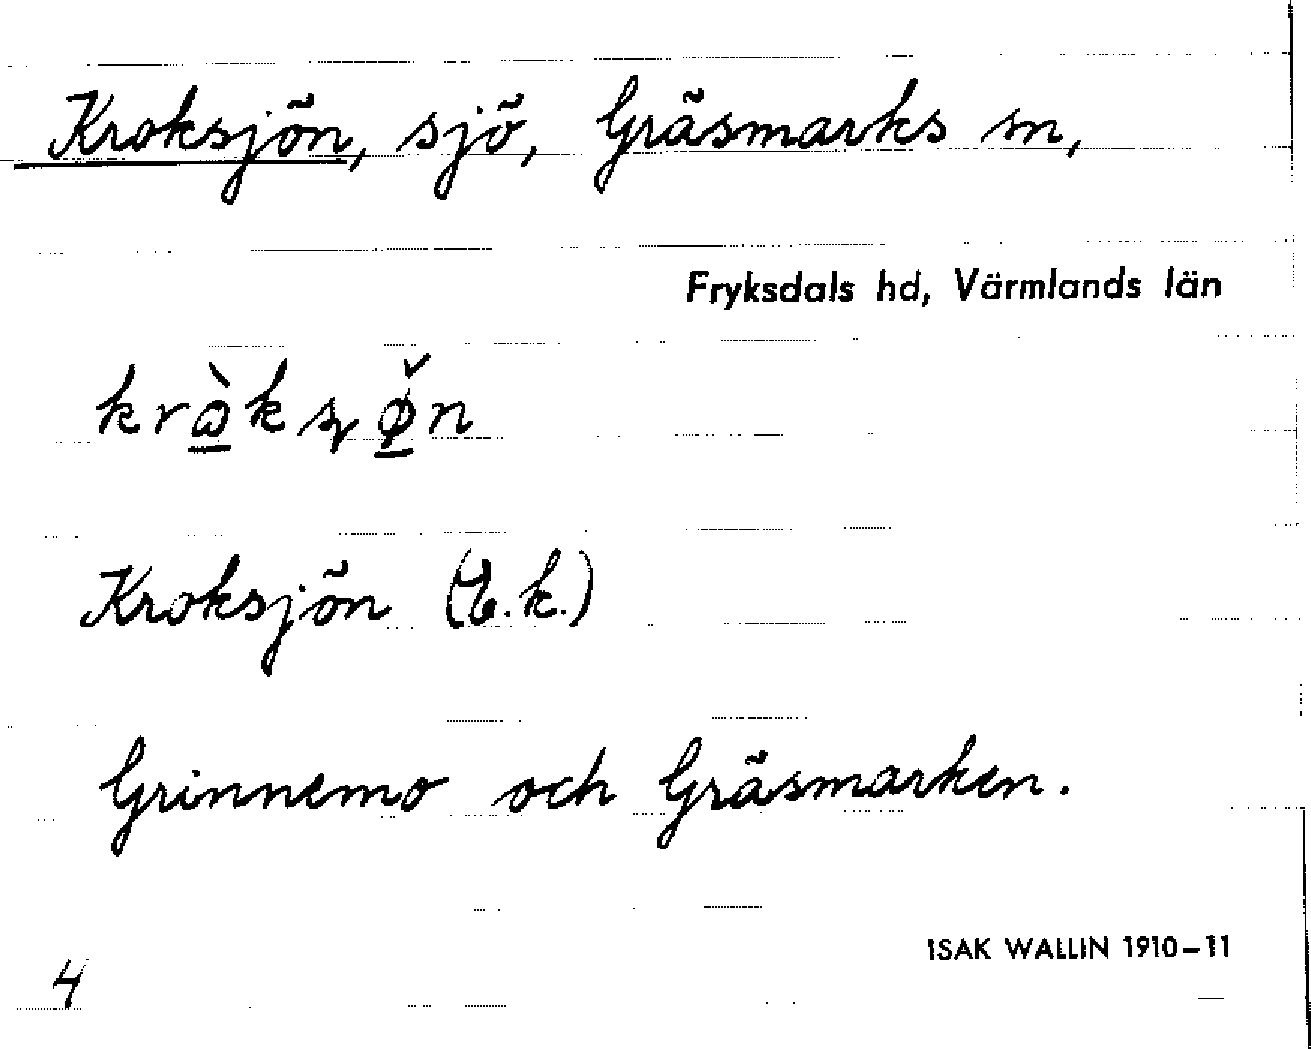 Kroksjön, sjö, Gräsmarks sn,
Fryksdals hd, Värmlands län
Kroksjön (t.k.)
Grinnemo och Gräsmarken.
ISAK WALLIN 1910-11
4